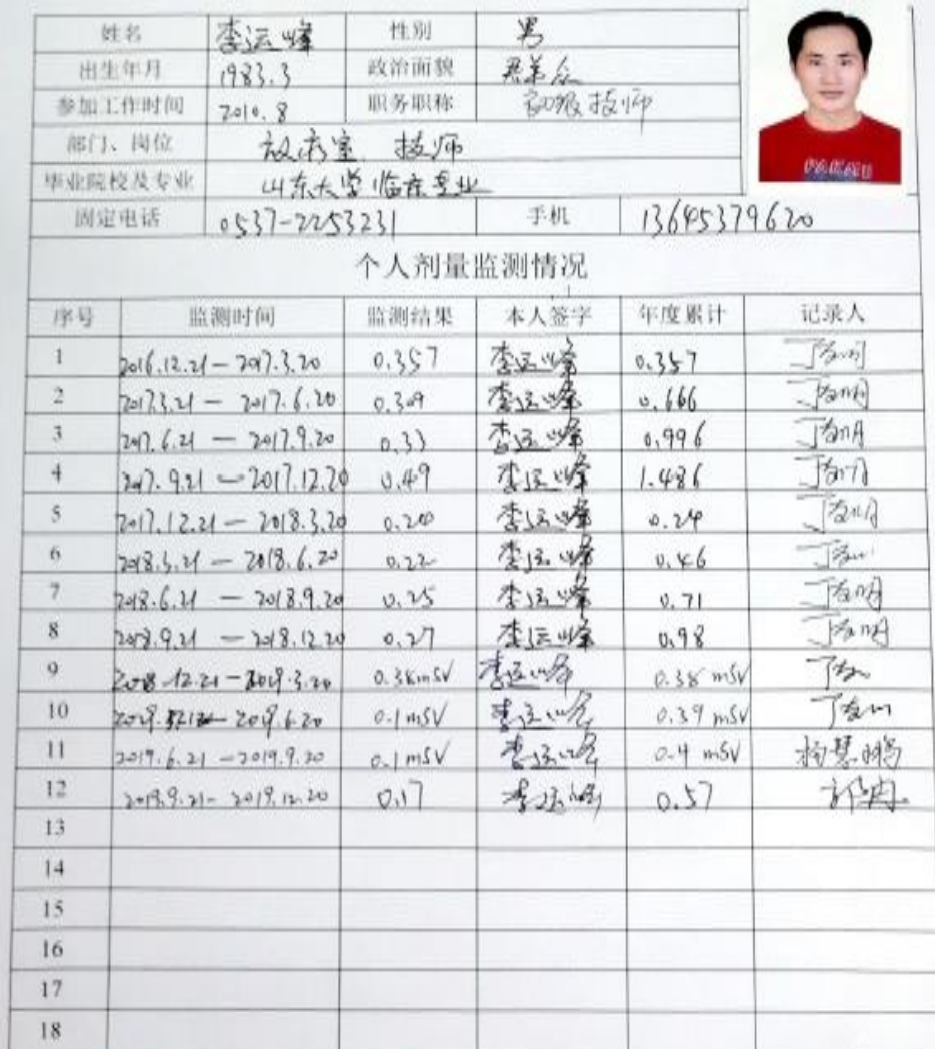 姓名 李运峰 性别 男
出生年月 1983.3 政治面貌
参加工作时间 2010.8 职务职称 初级技师
部门、岗位 放疗室 技师
毕业院校及专业 山东大学临床专业
固定电话 0537-2253231 手机 13645379620
个人剂量监测情况
序号 监测时间 监测结果 本人签字 年度累计 记录人
1 2016.12.21-2017.3.20 0.357 李运峰 0.357
2 2017.3.21-2017.6.20 0.309 李运峰 0.666
3 2017.6.21-2017.9.20 0.33 李运峰 0.996
4 2017.9.21-2017.12.20 0.49 李运峰 1.486
5 2017.12.21-2018.3.20 李运峰 0.24
6 2018.3.21-2018.6.20 0.22 李运峰 0.46
7 2018.6.21-2018.9.20 0.25 李运峰 0.71
8 2018.9.21-2018.12.20 0.27 李运峰 0.98
9 2018.12.21-2019.3.20 0.38mSV 李运峰 0.38mSV
10 2019.6.20 0.1mSV 李运峰 0.39mSV
11 2019.6.21-2019.9.20 0.1mSV 李运峰 0.4mSV 杨慧鹏
12 2019.9.21-2019.12.20 0.17 李运峰 0.57
13
14
15
16
17
18